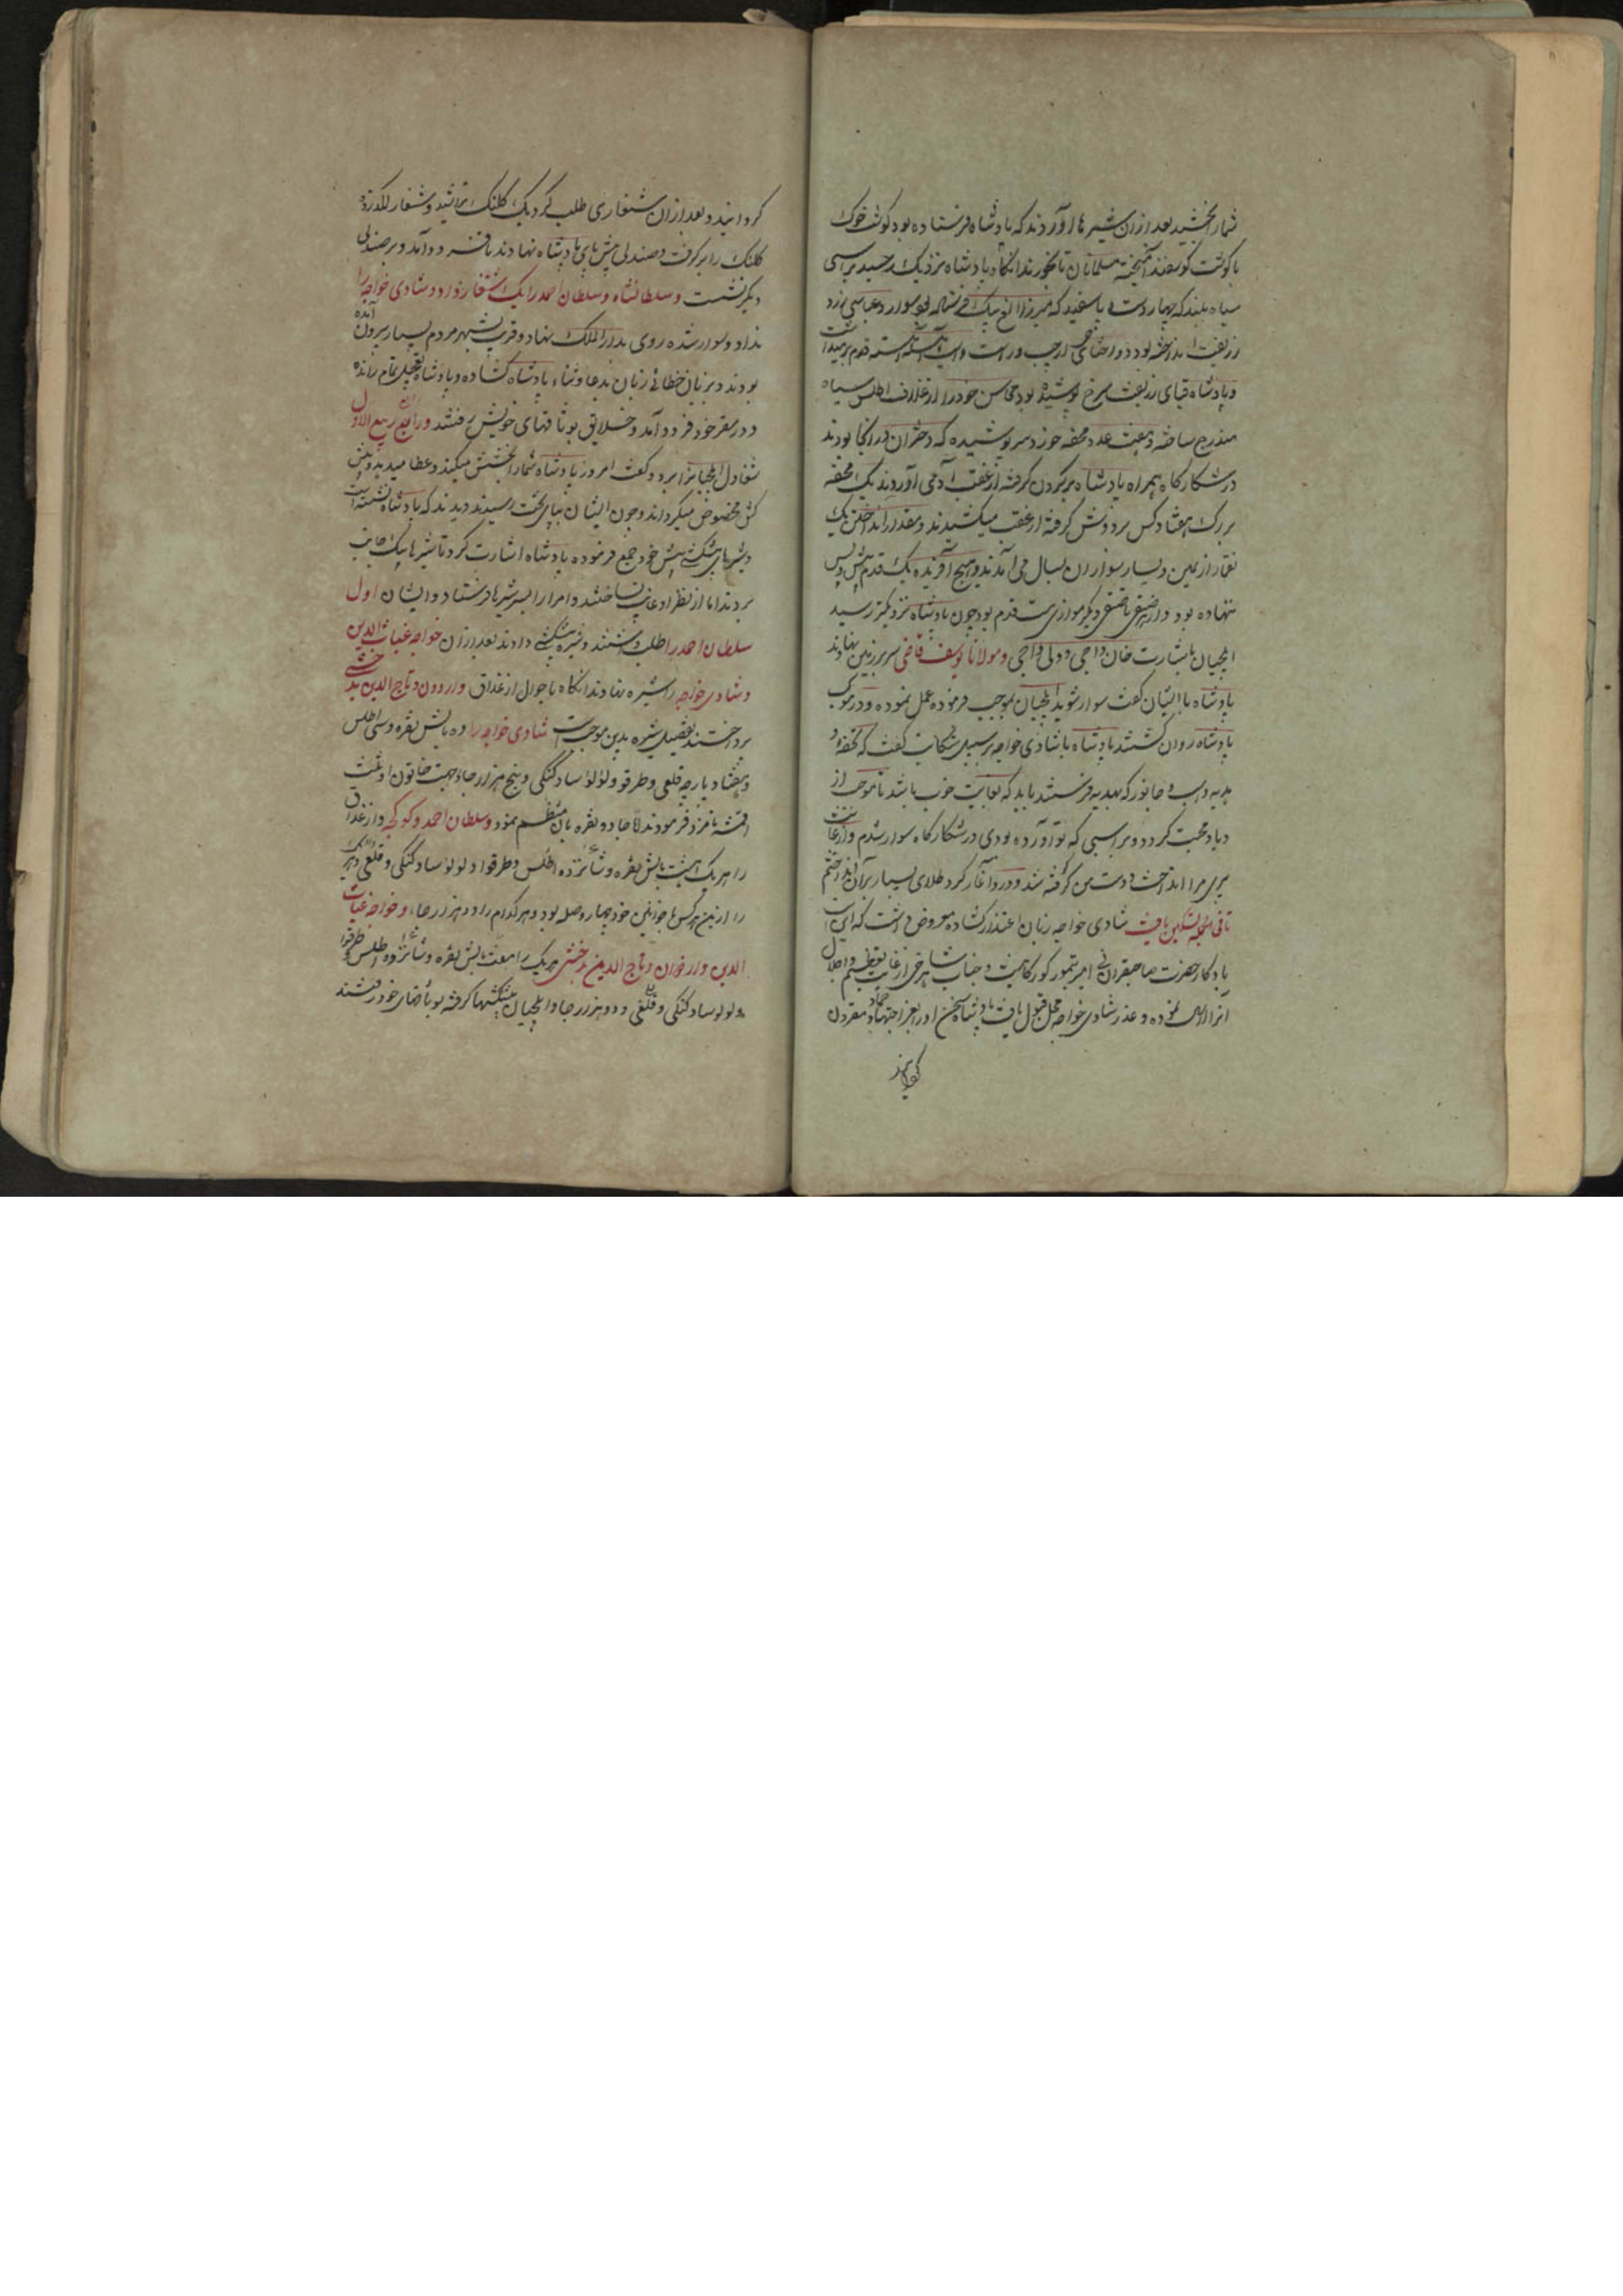 شمار بخشید بعد ازان شیرها آوردند که پادشاه فرستاده بود گوشت خوک
با گوشت گوسفند آمیخته مسلمانان نا خورند انگاه پادشاه نزدیک رسید بر اسبی
سیاه بلند که چهار دست و پا سفید که میرزا الغ بیک فرستاده بود سوار و عبایی زرد
زربفت انداخته بود و دو اختاجی از چپ و راست و اسب آهسته آهسته قدم بر میداشت
و پادشاه قبای زربفت سرخ پوشیده بود محاسن خود را از غلاف اطلس سیاه
مندرج ساخته و هفت عدد محفه خورد سر پوشیده که دختران در انجا بودند
در شکارگاه همراه پادشاه بر گردن گرفته از عقب آدمی آوردند یک محفه
بزرک هفتاد کس بر دوش گرفته از عقب میکشیدند و مقدار انداختن یک
از یمین و یسار سواران بسال می آمدند و هیچ آفریده یک قدم پیش و پس
ننهاده بود و از صفی تا صفی دیگر موازی بیست قدم بود چون پادشاه نزدیکتر رسید
ایلچیان باشارت خان داجی و دلی داجی و مولانا یوسف قاضی سر بر زمین نهادند
پادشاه با ایشان گفت سوار شوید ایلچیان بموجب فرموده عمل نموده و در موکب
پادشاه روان کشتند پادشاه با شادی خواجه بر سبیل شکایت گفت که تحفه و
هدیه و اسب و جانور که بهدیه فرستند باید که بغایت خوب باشد تا موجب از
دیاد محبت کردد و بر اسبی که تو آورده بودی در شکارگاه سوار شدم و از غایت
پیری مرا انداخت و دست من کوفته شد و درد آغاز کرد طلای بسیار بر آن انداختم
تا فی الجمله تسکین یافت شادی خواجه زبان اعتذار کشاده معروض داشت که این اسب
یادگار حضرت صاحبقرانی امیر تیمور گورگانیست و جناب شاهرخی از غایت تعظیم و اجلال
آنرا ارسال نموده و عذر شادی خواجه محل قبول یافت پادشاه سخن او را بعز اجتهاد مقرون
گردانید
گردانید و بعد ازان شنقاری طلب کرد یک کلنک پرانید و شنقار لکد زده
کلنک را بر گرفت و صندلی پیش پای پادشاه نهادند تا فرود آمد و بر صندلی
دیگر نشست و سلطانشاه و سلطان احمد را یک یک شنقار داد و شادی خواجه را
نداد و سوار شده روی بدار الملک نهاد و قریب بشهر مردم بسیار بیرون آمده
بودند و بزبان خطائی زبان بدعا و ثناء پادشاه کشاده و پادشاه بتعجیل تمام رانده
و در مقر خود فرود آمد و خلایق بوثاقهای خویش رفتند و رابع ربیع الاول
شقاول ایلچیانرا برد و گفت امروز پادشاه شما را بخشش میکند و عطا میدهد و پیش
کش مخصوص میگرداند و چون ایشان بپای تخت رسیدند دیدند که پادشاه نشسته است
و شیرهای پیشکش پیش خود جمع فرموده پادشاه اشارت کرد تا شیرها بیک جانب
بردند اما از نظر او غایب نساختند و امرا را بسر شیرها فرستاد و ایشان اول
سلطان احمد را طلب داشتند و شیره پیشکش دادند بعد ازان خواجه غیاث الدین
و شادی خواجه را شیره نهادند انگاه با حوال ارغداق و اردون و تاج الدین بدخشی
پرداختند تفصیل شیره بدین موجب است شادی خواجه را ده بالش نقره و سی اطلس
و هفتاد پارچه قلعی و طرقو و لولؤ ساد کنکی و پنج هزار جاو جهت خاتون او ثلث
اقمشه نامزد فرمودند لا جاو و نقره بان منظم نمود و سلطان احمد و کوکجه و ارغداق
را هریک هشت بالش نقره و شانزده اطلس و طرقو و لولو ساد کنکی و قلعی
را و خواجه غیاث
الدین و اردوان و تاج الدین بدخشی هر یک را هفت بالش نقره و شانزده اطلس و طرقو
و لولو ساد کنکی و قلعی و دو هزار جاو و ایلچیان پیشکشها گرفته بوثاقهای خود رفتند